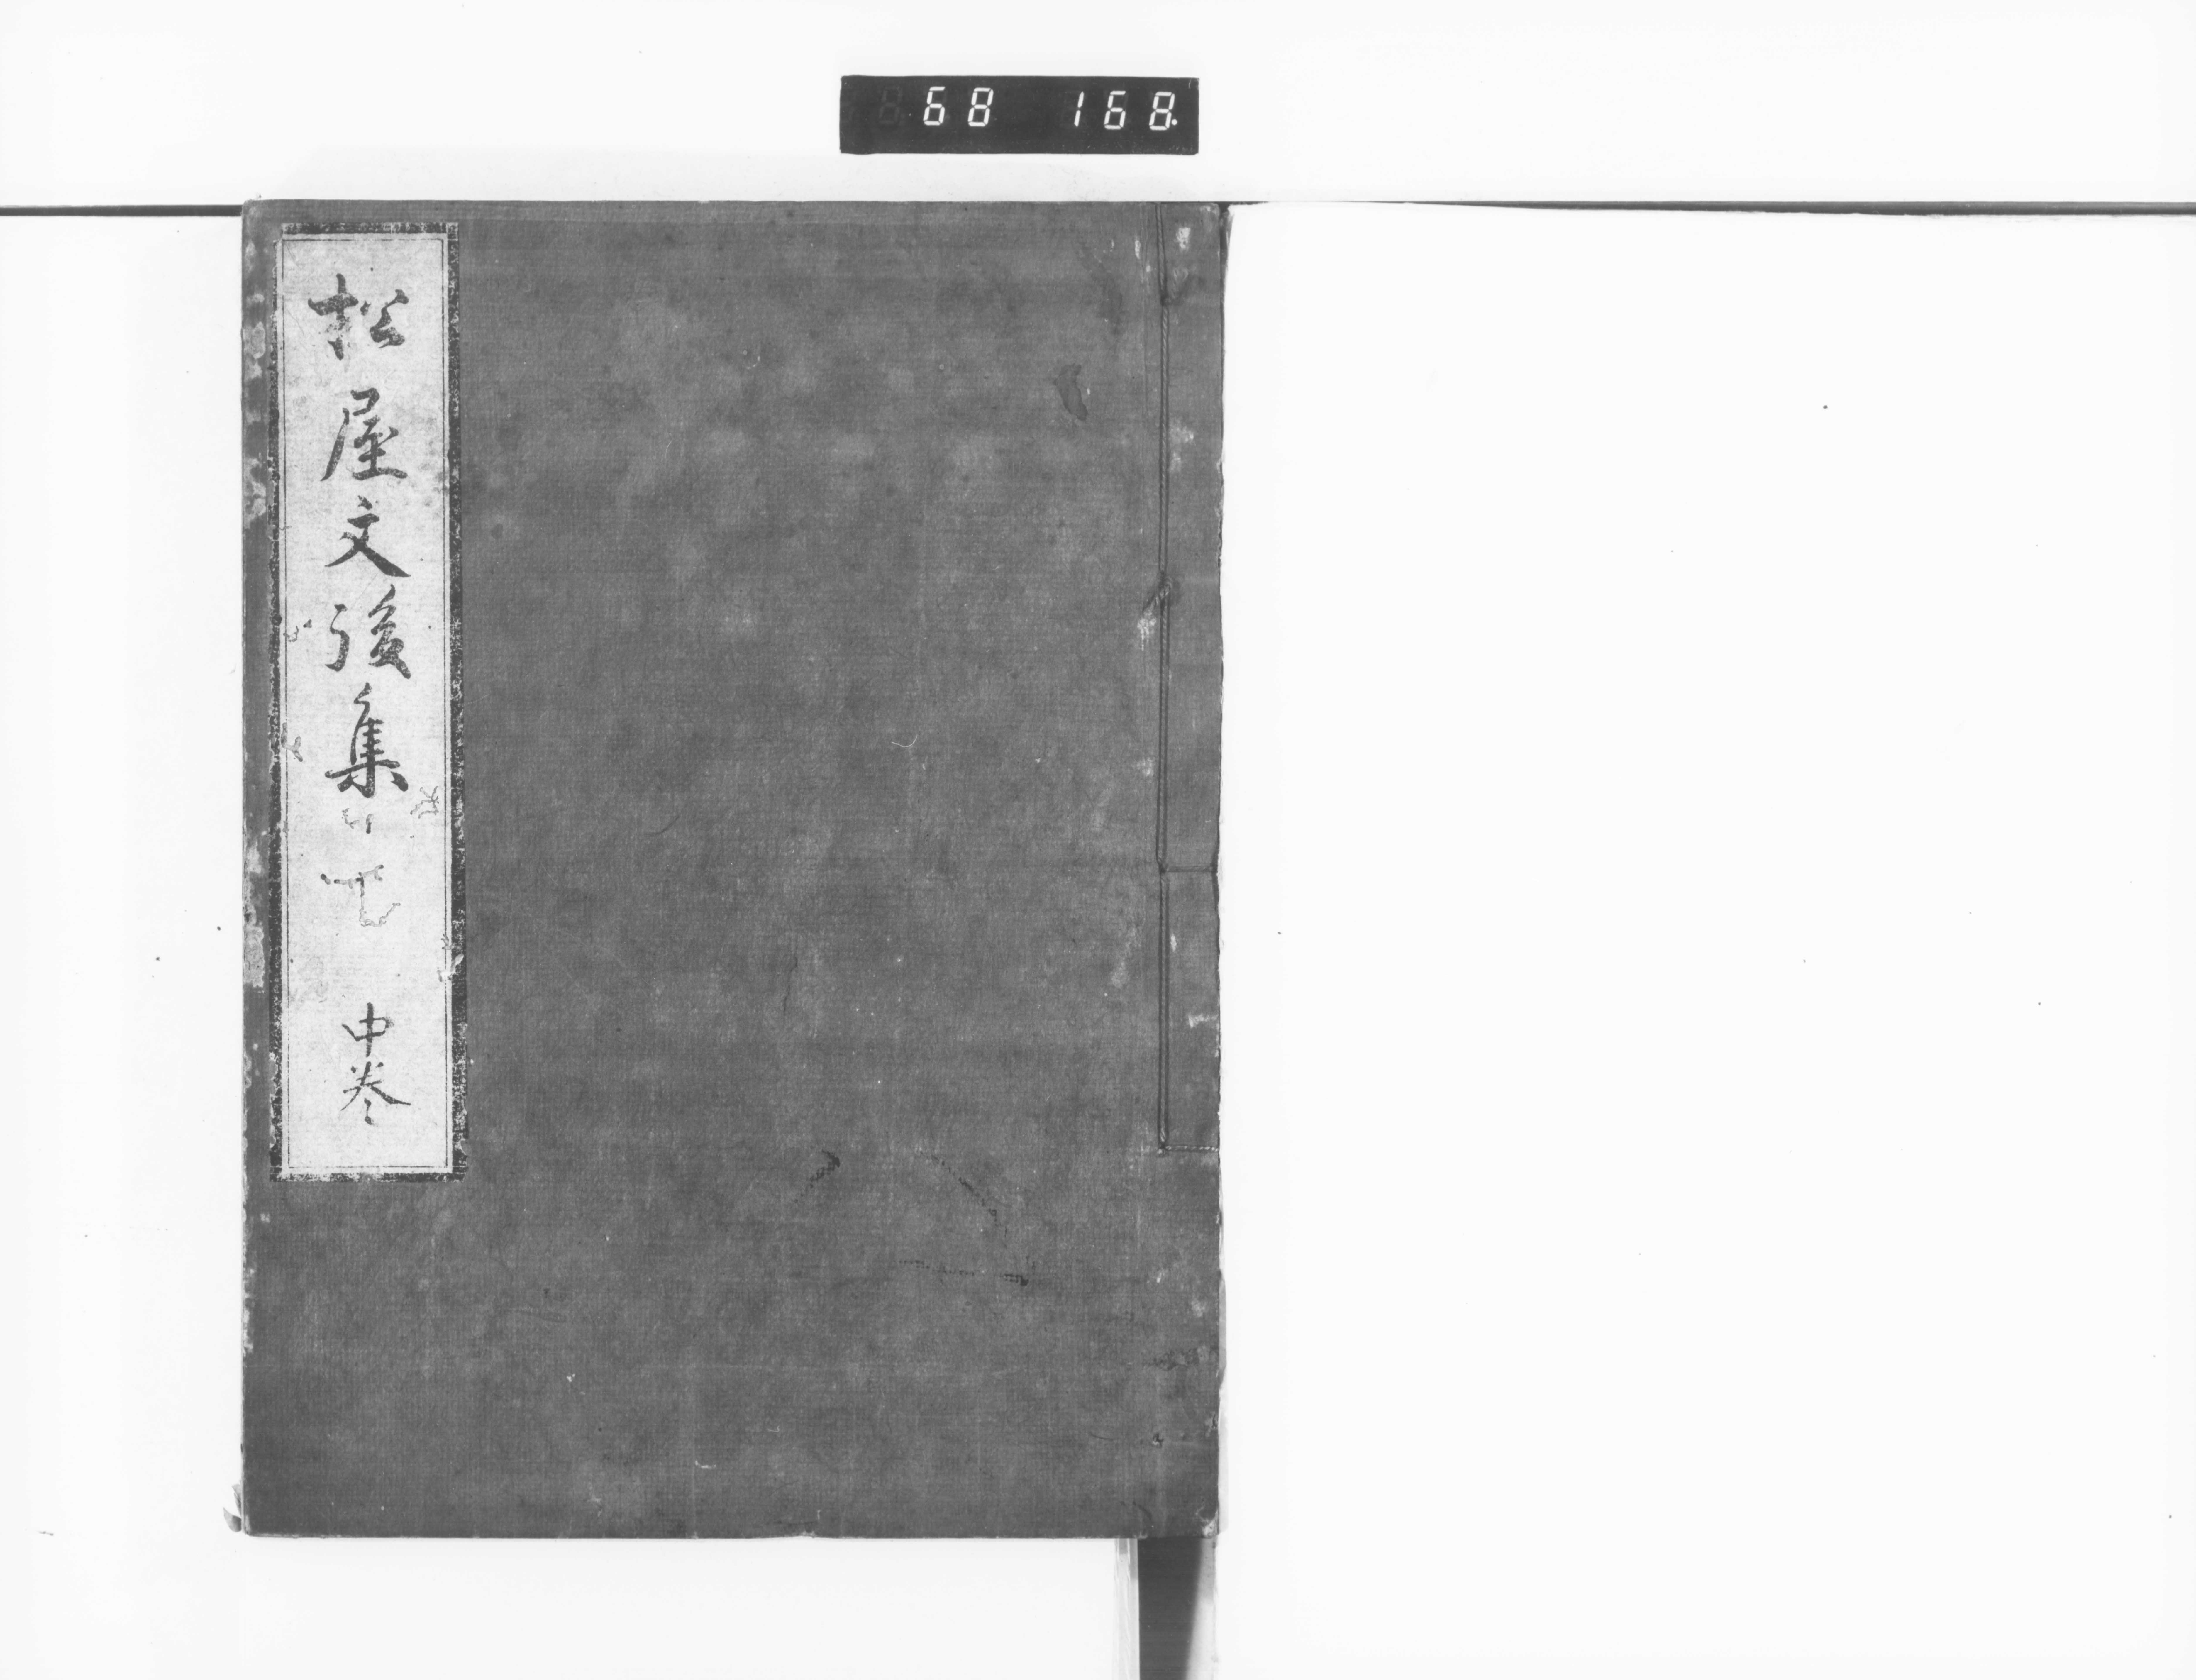 68 168
松屋文後集
中巻